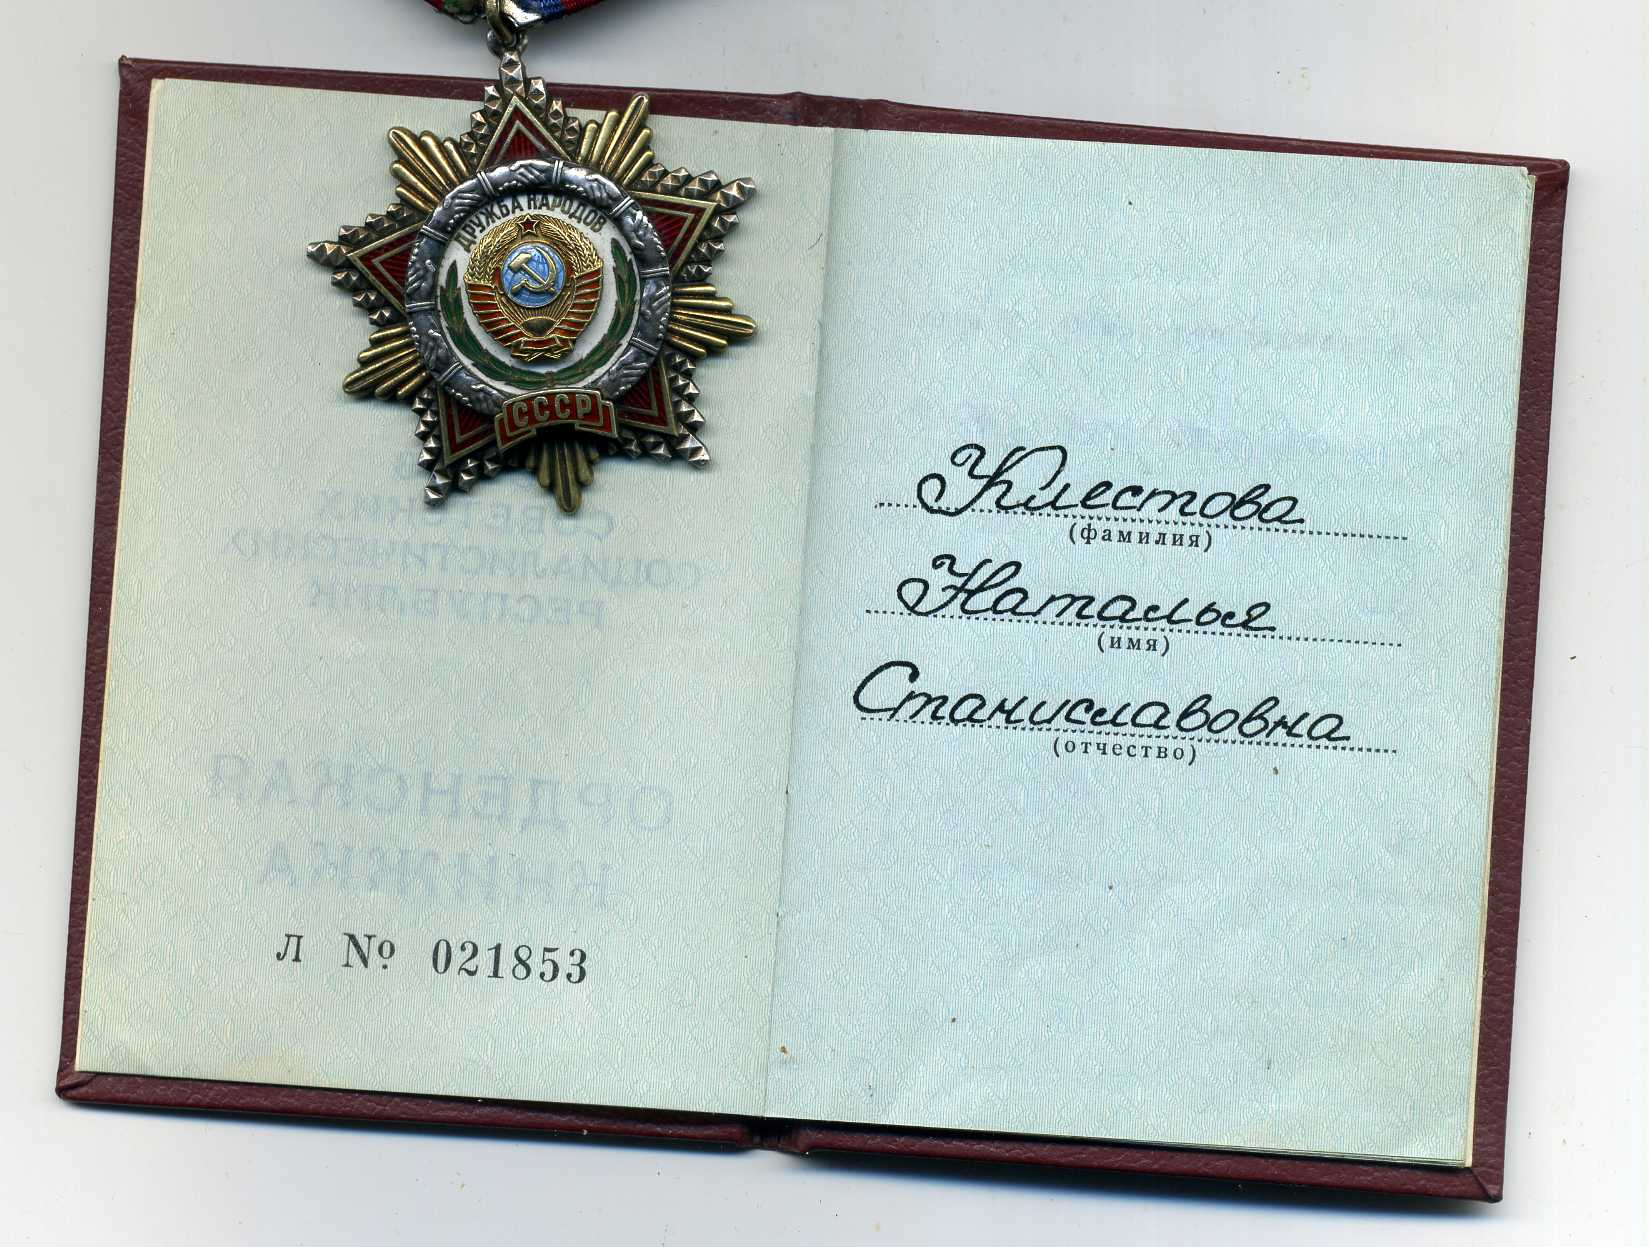 ДРУЖБА НАРОДОВ
СССР
СОВЕТСКИХ
СОЦИАЛИСТИЧЕСКИХ
РЕСПУБЛИК
ОРДЕНСКАЯ
КНИЖКА
Л № 021853
Клестова
(фамилия)
Наталья
(имя)
Станиславовна
(отчество)